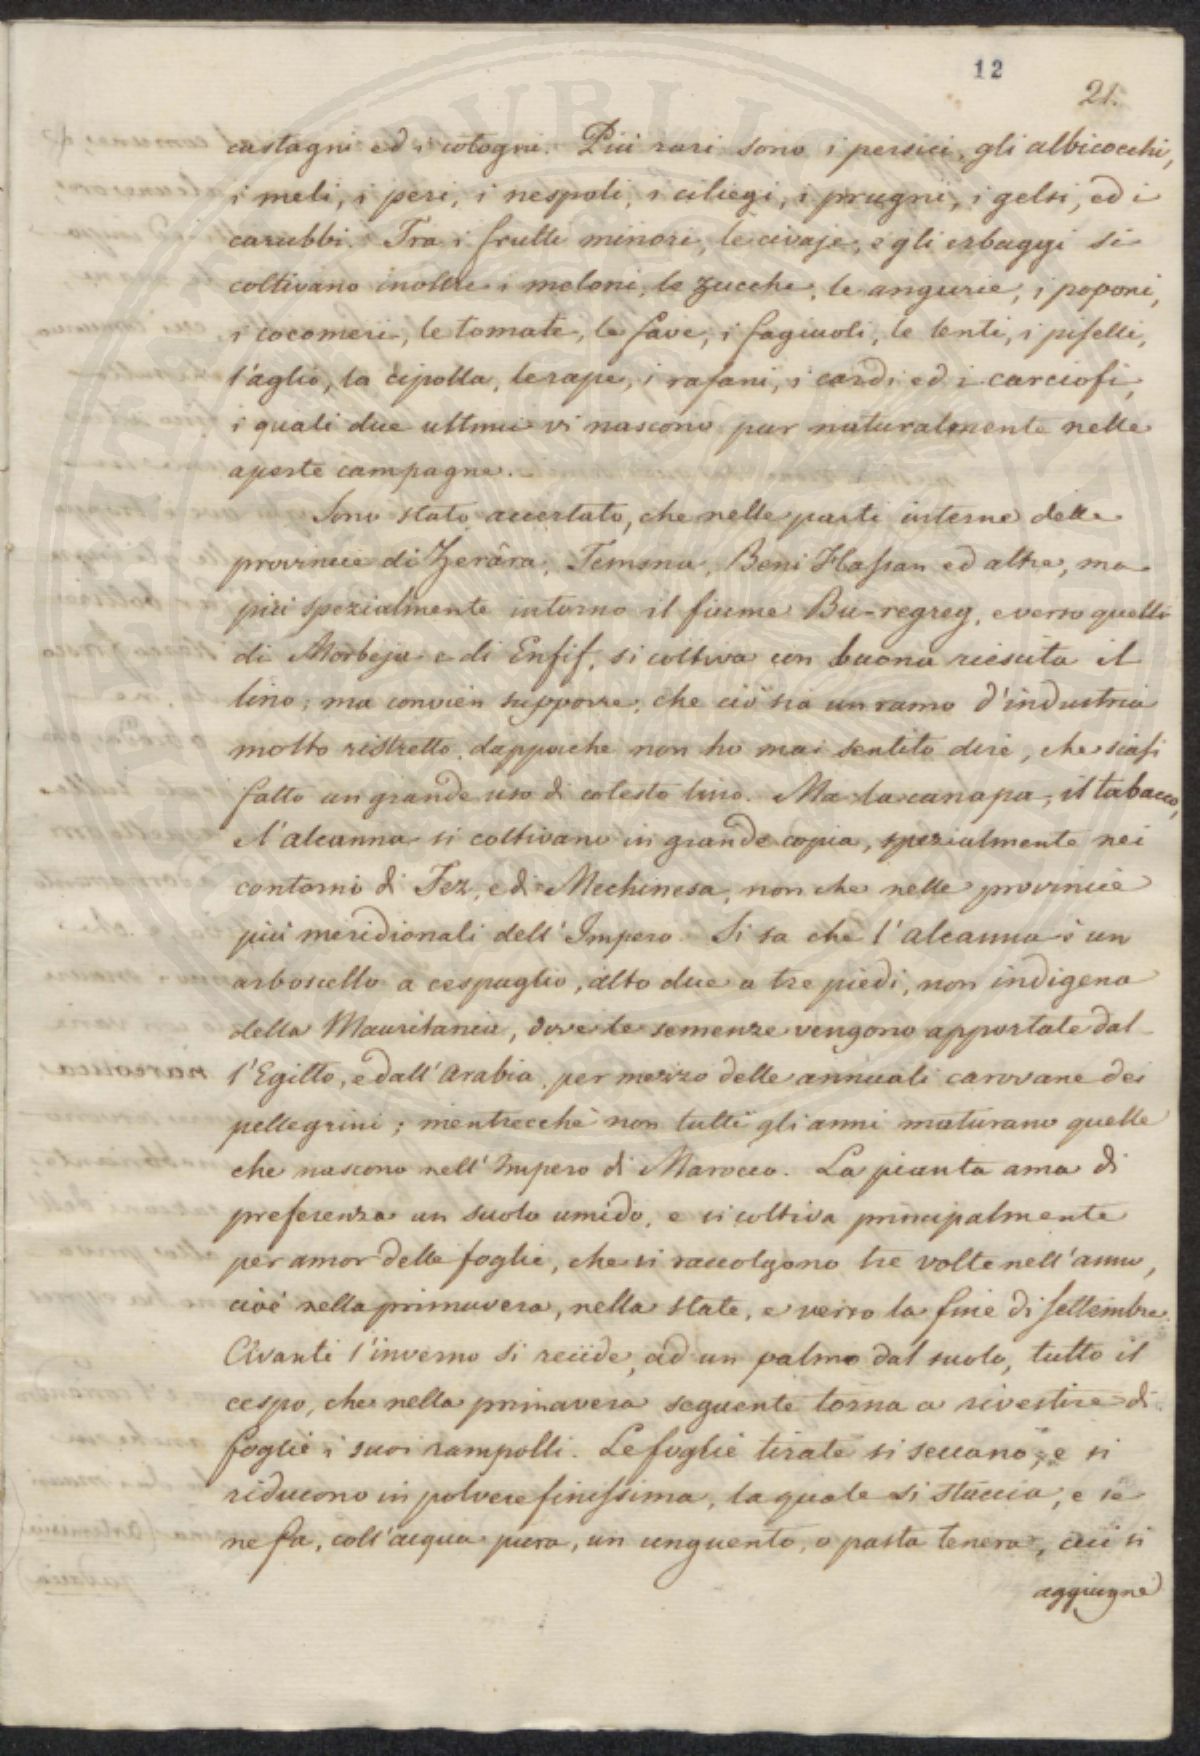 12
21.
castagni ed i cotogni. Più rari sono i persici, gli albicocchi,
i meli, i peri, i nespoli, i ciliegi, i prugni, i gelsi, ed i
carubbi. Tra i frutti minori, le civaje, e gli erbaggi si
coltivano inoltre i meloni, le zucche, le angurie, i poponi,
i cocomeri, le tomate, le fave, i fagiuoli, le lenti, i piselli,
l'aglio, la cipolla, le rape, i rafani, i cardi ed i carciofi,
i quali due ultimi vi nascono pur naturalmente nelle
aperte campagne.
Sono stato accertato, che nelle parti interne delle
provincie di Zerâra, Temsna, Beni Hassan ed altre, ma
più spezialmente intorno il fiume Bu-regreg, e verso quelli
di Morbeja e di Enfif, si coltiva con buona riescita il
lino; ma convien supporre, che ciò sia un ramo d'industria
molto ristretto, dappoiche non ho mai sentito dire, che siasi
fatto un grande uso di cotesto lino. Ma la canapa, il tabacco,
e l'alcanna si coltivano in grande copia, spezialmente nei
contorni di Fez, e di Mechinesa, non che nelle provincie
più meridionali dell'Impero. Si sa che l'alcanna è un
arboscello a cespuglio, alto due a tre piedi, non indigeno
della Mauritania, dove le semenze vengono apportate dal-
l'Egitto, e dall'Arabia, per mezzo delle annuali carovane dei
pellegrini; mentrecchè non tutti gli anni maturano quelle
che nascono nell'Impero di Marocco. La pianta ama di
preferenza un suolo umido, e si coltiva principalmente
per amor delle foglie, che si raccolgono tre volte nell'anno,
cioè nella primavera, nella state, e verso la fine di settembre.
Avanti l'inverno si recide, ad un palmo dal suolo, tutto il
cespo, che nella primavera seguente torna a rivestire di
foglie i suoi rampolli. Le foglie tirate si seccano, e si
riducono in polvere finissima, la quale si staccia, e se
ne fa, coll'acqua pura, un unguento, o pasta tenera, cui si
aggiugne